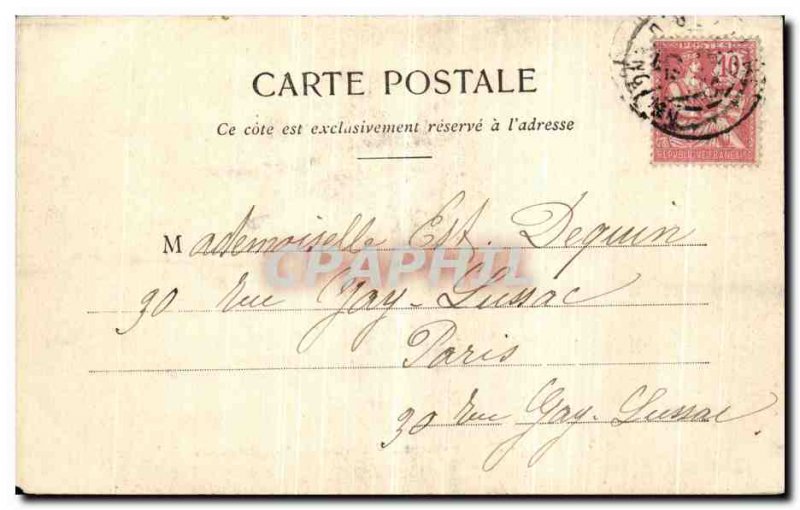 CARTE POSTALE
Ce côté est exclusivement réservé à l'adresse
POSTES
10
REPUBLIQUE FRANÇAISE
Mademoiselle Est. Dequin
CPAPHIL
30 rue Gay-Lussac
Paris
30 rue Gay-Lussac